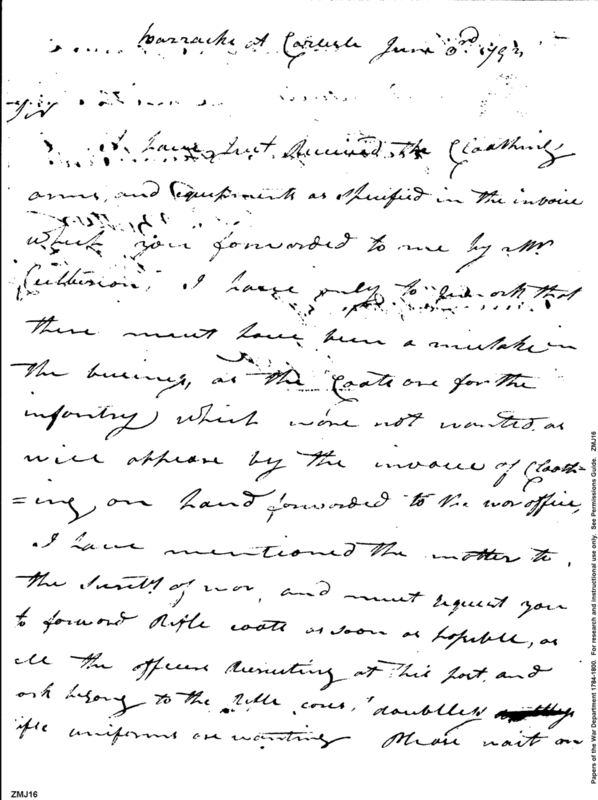 barracks at Carlisle June 3rd 1793
Sir
I have just Received the Cloathing
arms, and Equipments as specified in the invoice
which you forwarded to me by Mr.
Culbertson, I have only to remark that
there must have been a mistake in
the business, as the Coats are for the
infantry which were not wanted as
will appear by the invoice of Cloath=
=ing on hand forwarded to the war office,
I have mentioned the matter to
the Secrety. of war, and must request you
to forward Rifle coats as soon as possible, as
all the officers Recruiting at this post and
belong to the Rifle corps, doubtless
uniforms are wanting Please wait on
ZMJ16
Papers of the War Department 1784-1800. For research and instructional use only. See Permissions Guide. ZMJ16